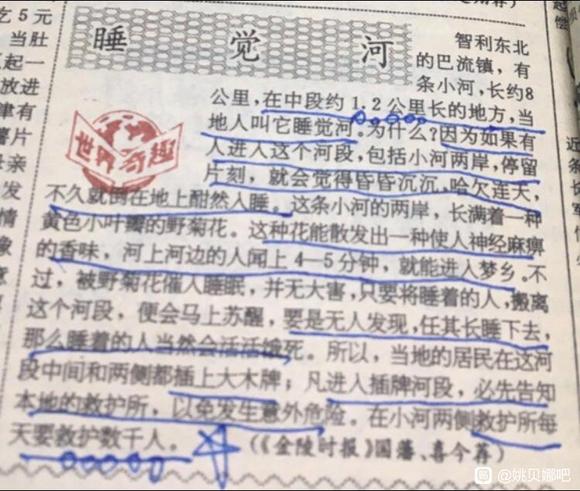 睡觉河
世界奇趣
智利东北
的巴流镇，有
条小河，长约8
公里，在中段约1.2公里长的地方，当
地人叫它睡觉河。为什么？因为如果有
人进入这个河段，包括小河两岸，停留
片刻，就会觉得昏昏沉沉、哈欠连天，
不久就倒在地上酣然入睡。这条小河的两岸，长满着一种
黄色小叶瓣的野菊花。这种花能散发出一种使人神经麻痹
的香味，河上河边的人闻上4—5分钟，就能进入梦乡。不
过，被野菊花催人睡眠，并无大害，只要将睡着的人，搬离
这个河段，便会马上苏醒，要是无人发现，任其长睡下去，
那么睡着的人当然会活活饿死。所以，当地的居民在这河
段中间和两侧都插上大木牌；凡进入插牌河段，必先告知
本地的救护所，以免发生意外危险。在小河两侧救护所每
天要救护数千人。
（《金陵时报》国藩、喜今荐）
乞5元
当肚
起一
放进
津有
薯片
母亲
发
情
像
意
@姚贝娜吧